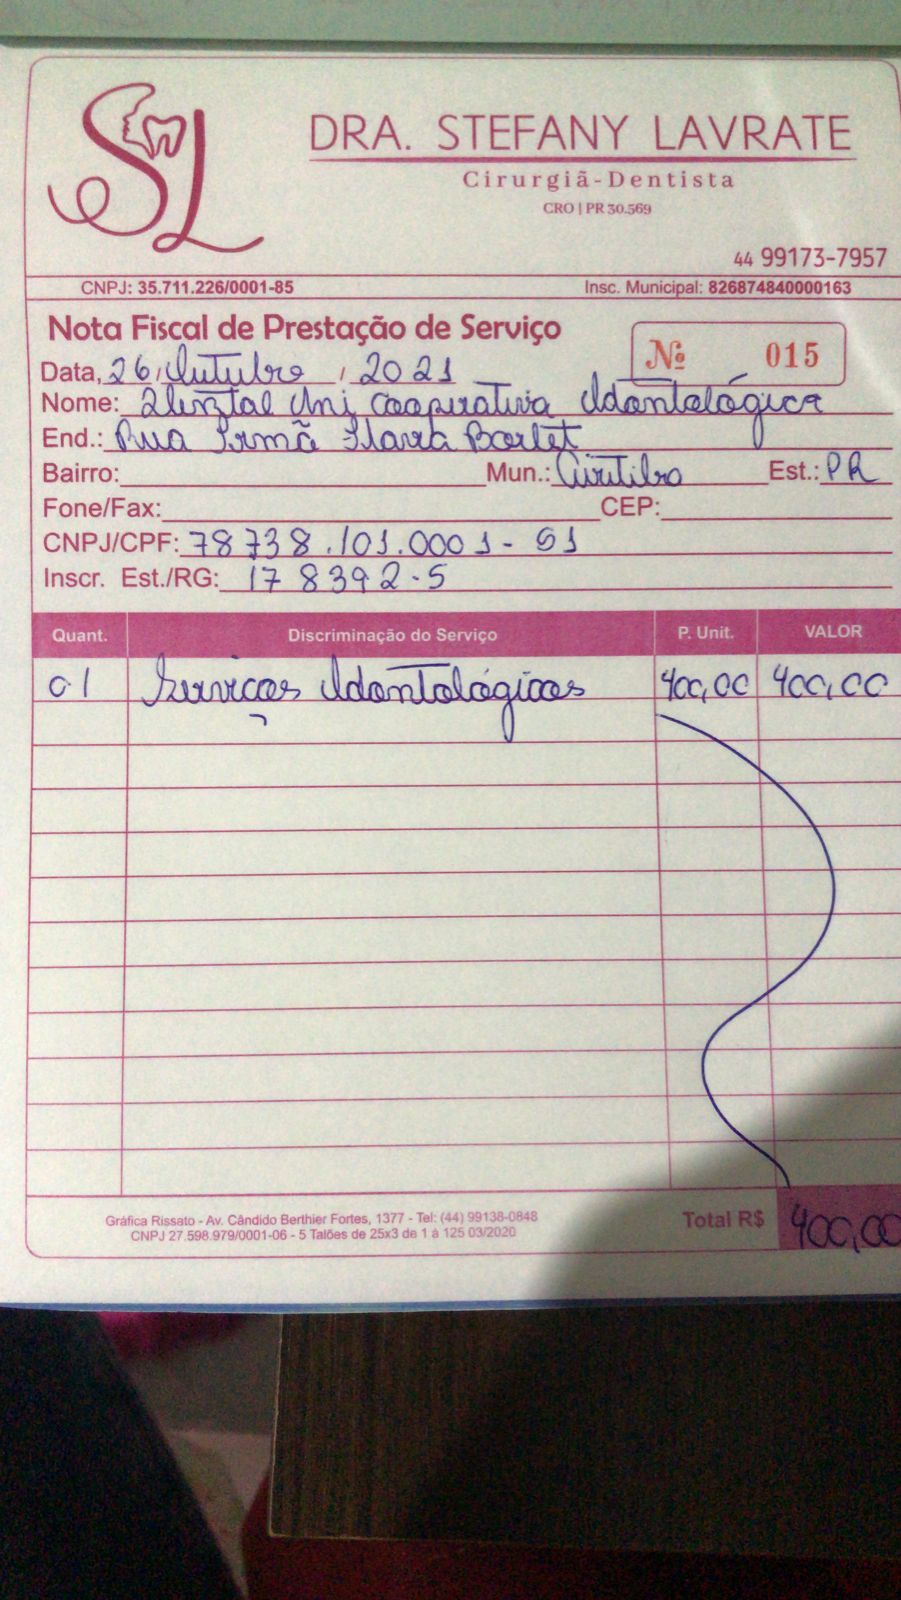 SL
DRA. STEFANY LAVRATE
Cirurgiã-Dentista
CRO | PR 30.569
44 99173-7957
CNPJ: 35.711.226/0001-85 Insc. Municipal: 826874840000163
Nota Fiscal de Prestação de Serviço
Nº 015
Data, 26 / Outubro / 2021
Nome: Uni Cooperativa Odontológica
End.: Rua Irmã Flavia Borlet
Bairro: Mun.: Curitiba Est.: PR
Fone/Fax: CEP:
CNPJ/CPF: 78738.101.0001-51
Inscr. Est./RG: 178392-5
Quant. Discriminação do Serviço P. Unit. VALOR
01 Serviços Odontológicos 400,00 400,00
Gráfica Rissato - Av. Cândido Berthier Fortes, 1377 - Tel: (44) 99138-0848
CNPJ 27.598.979/0001-06 - 5 Talões de 25x3 de 1 à 125 03/2020
Total R$ 400,00